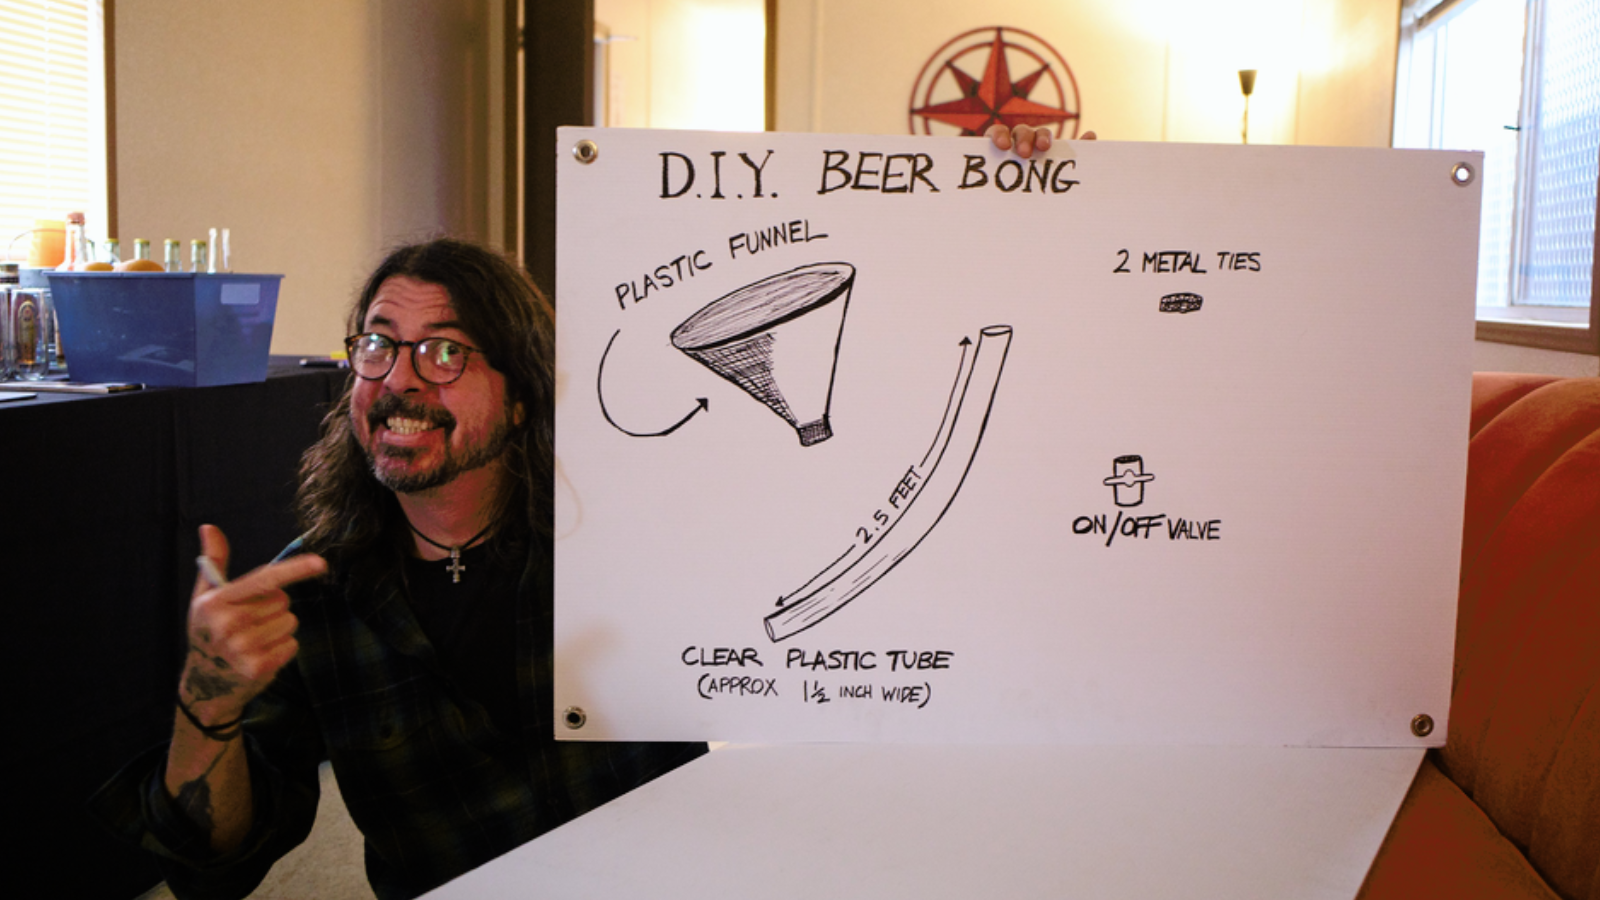 D.I.Y. BEER BONG
PLASTIC FUNNEL
2 METAL TIES
2.5 FEET
ON/OFF VALVE
CLEAR PLASTIC TUBE
(APPROX 1½ INCH WIDE)